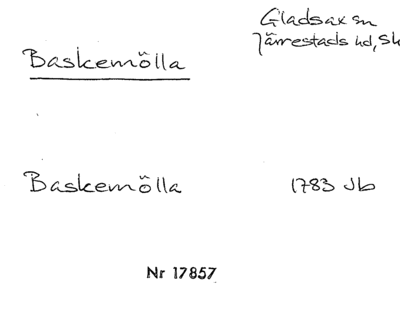 Gladsax sn
Baskemölla
Järrestads hd, Sk
Baskemölla
1783 Jb
Nr 17857